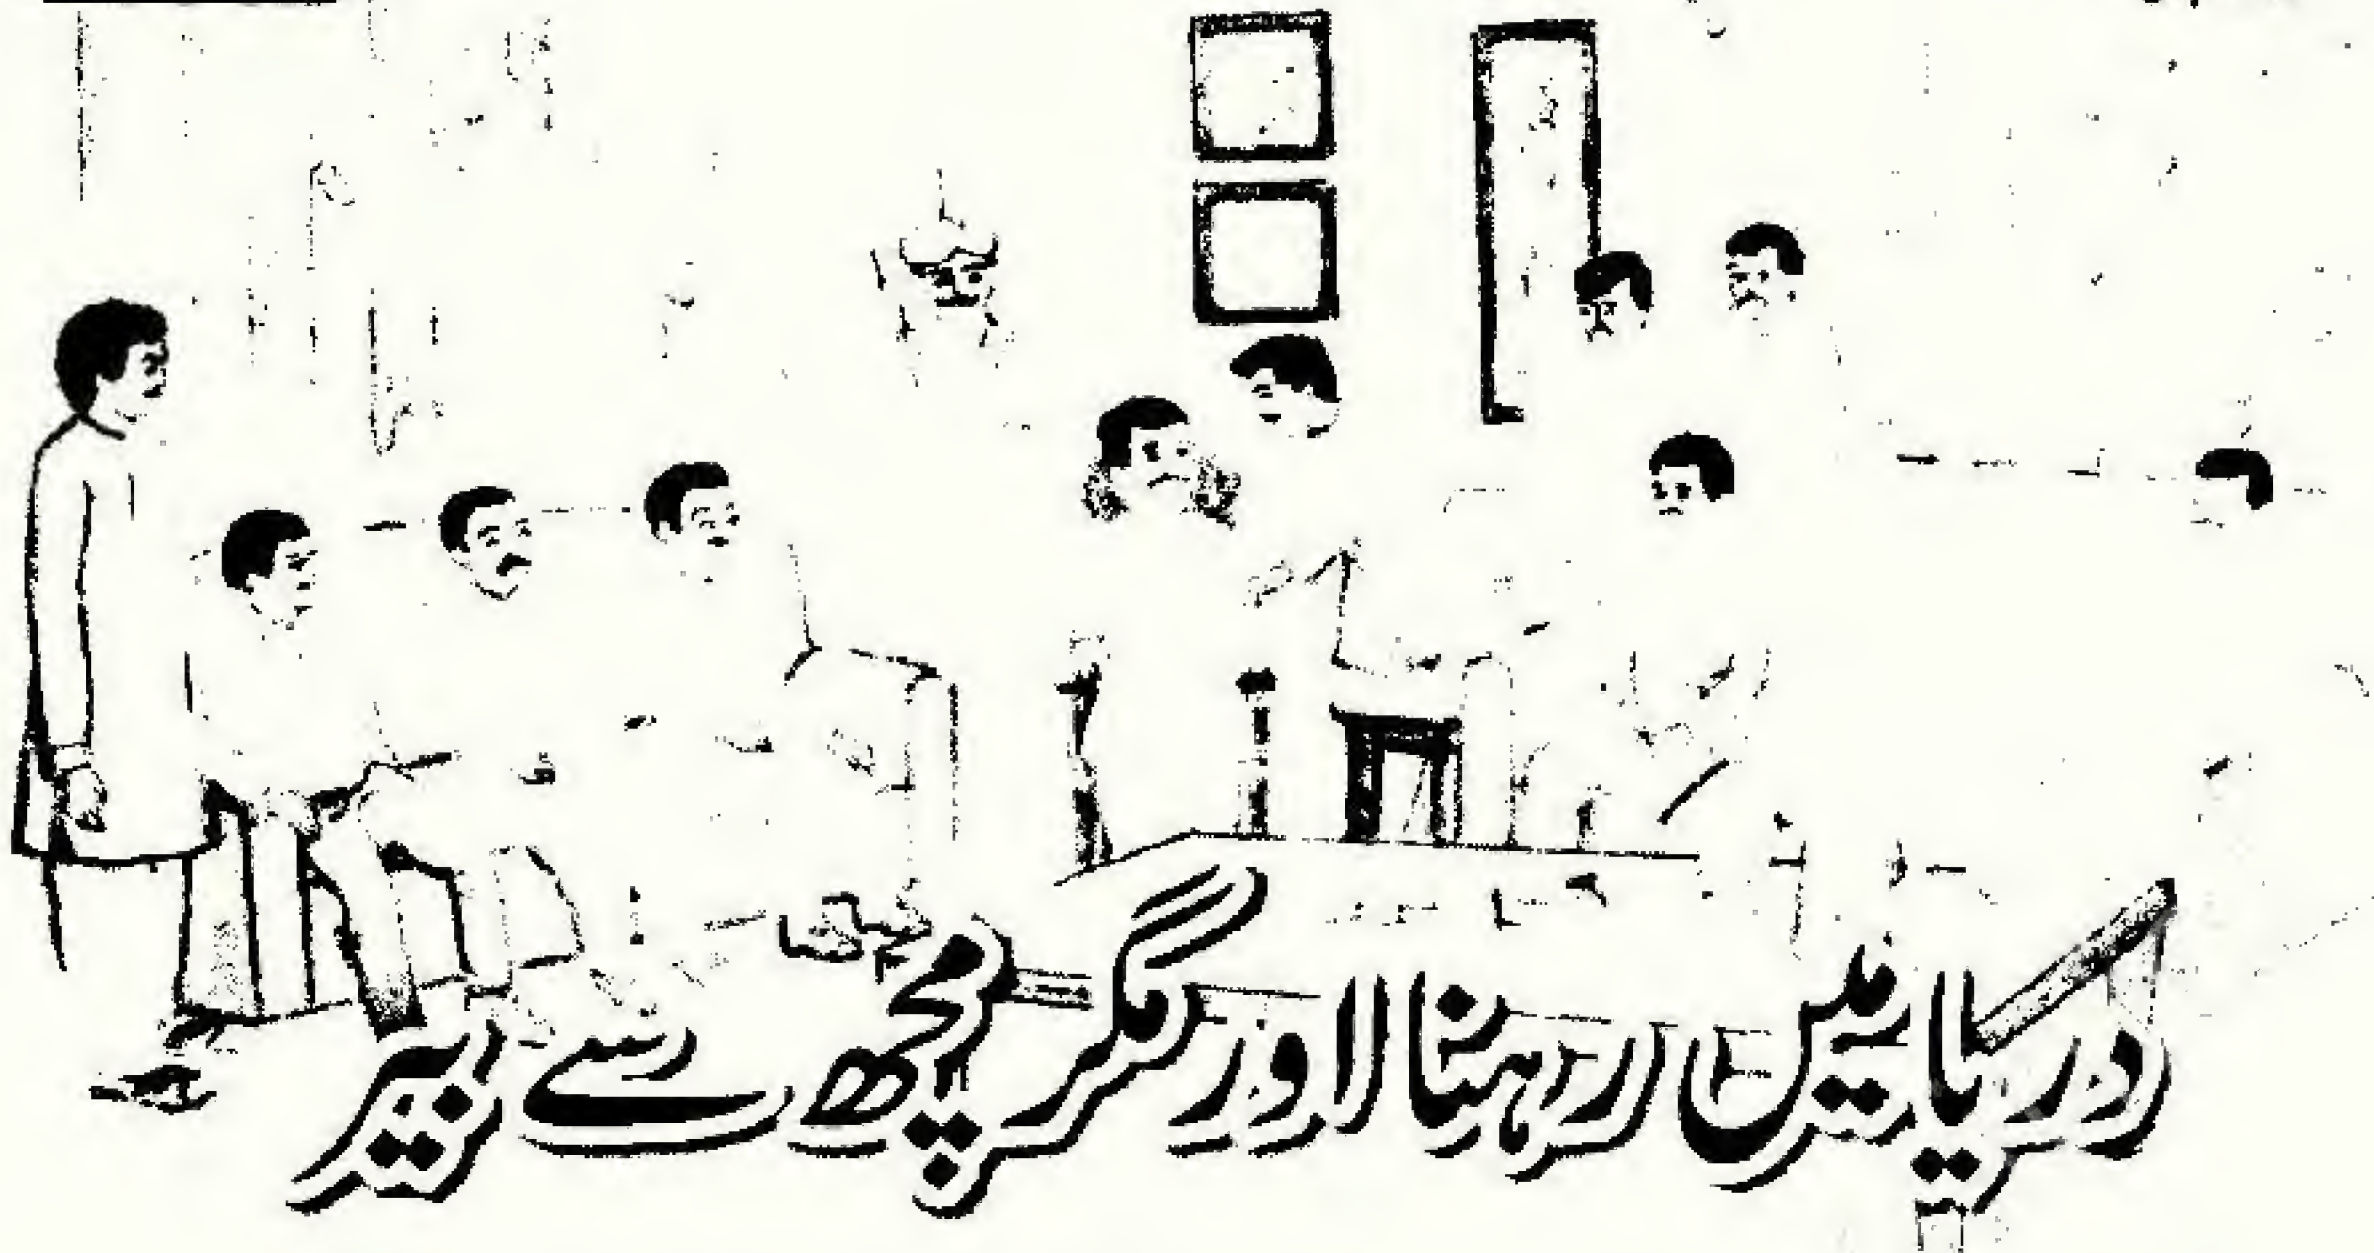 دریا میں رہنا اور مگرمچھ سے بیر